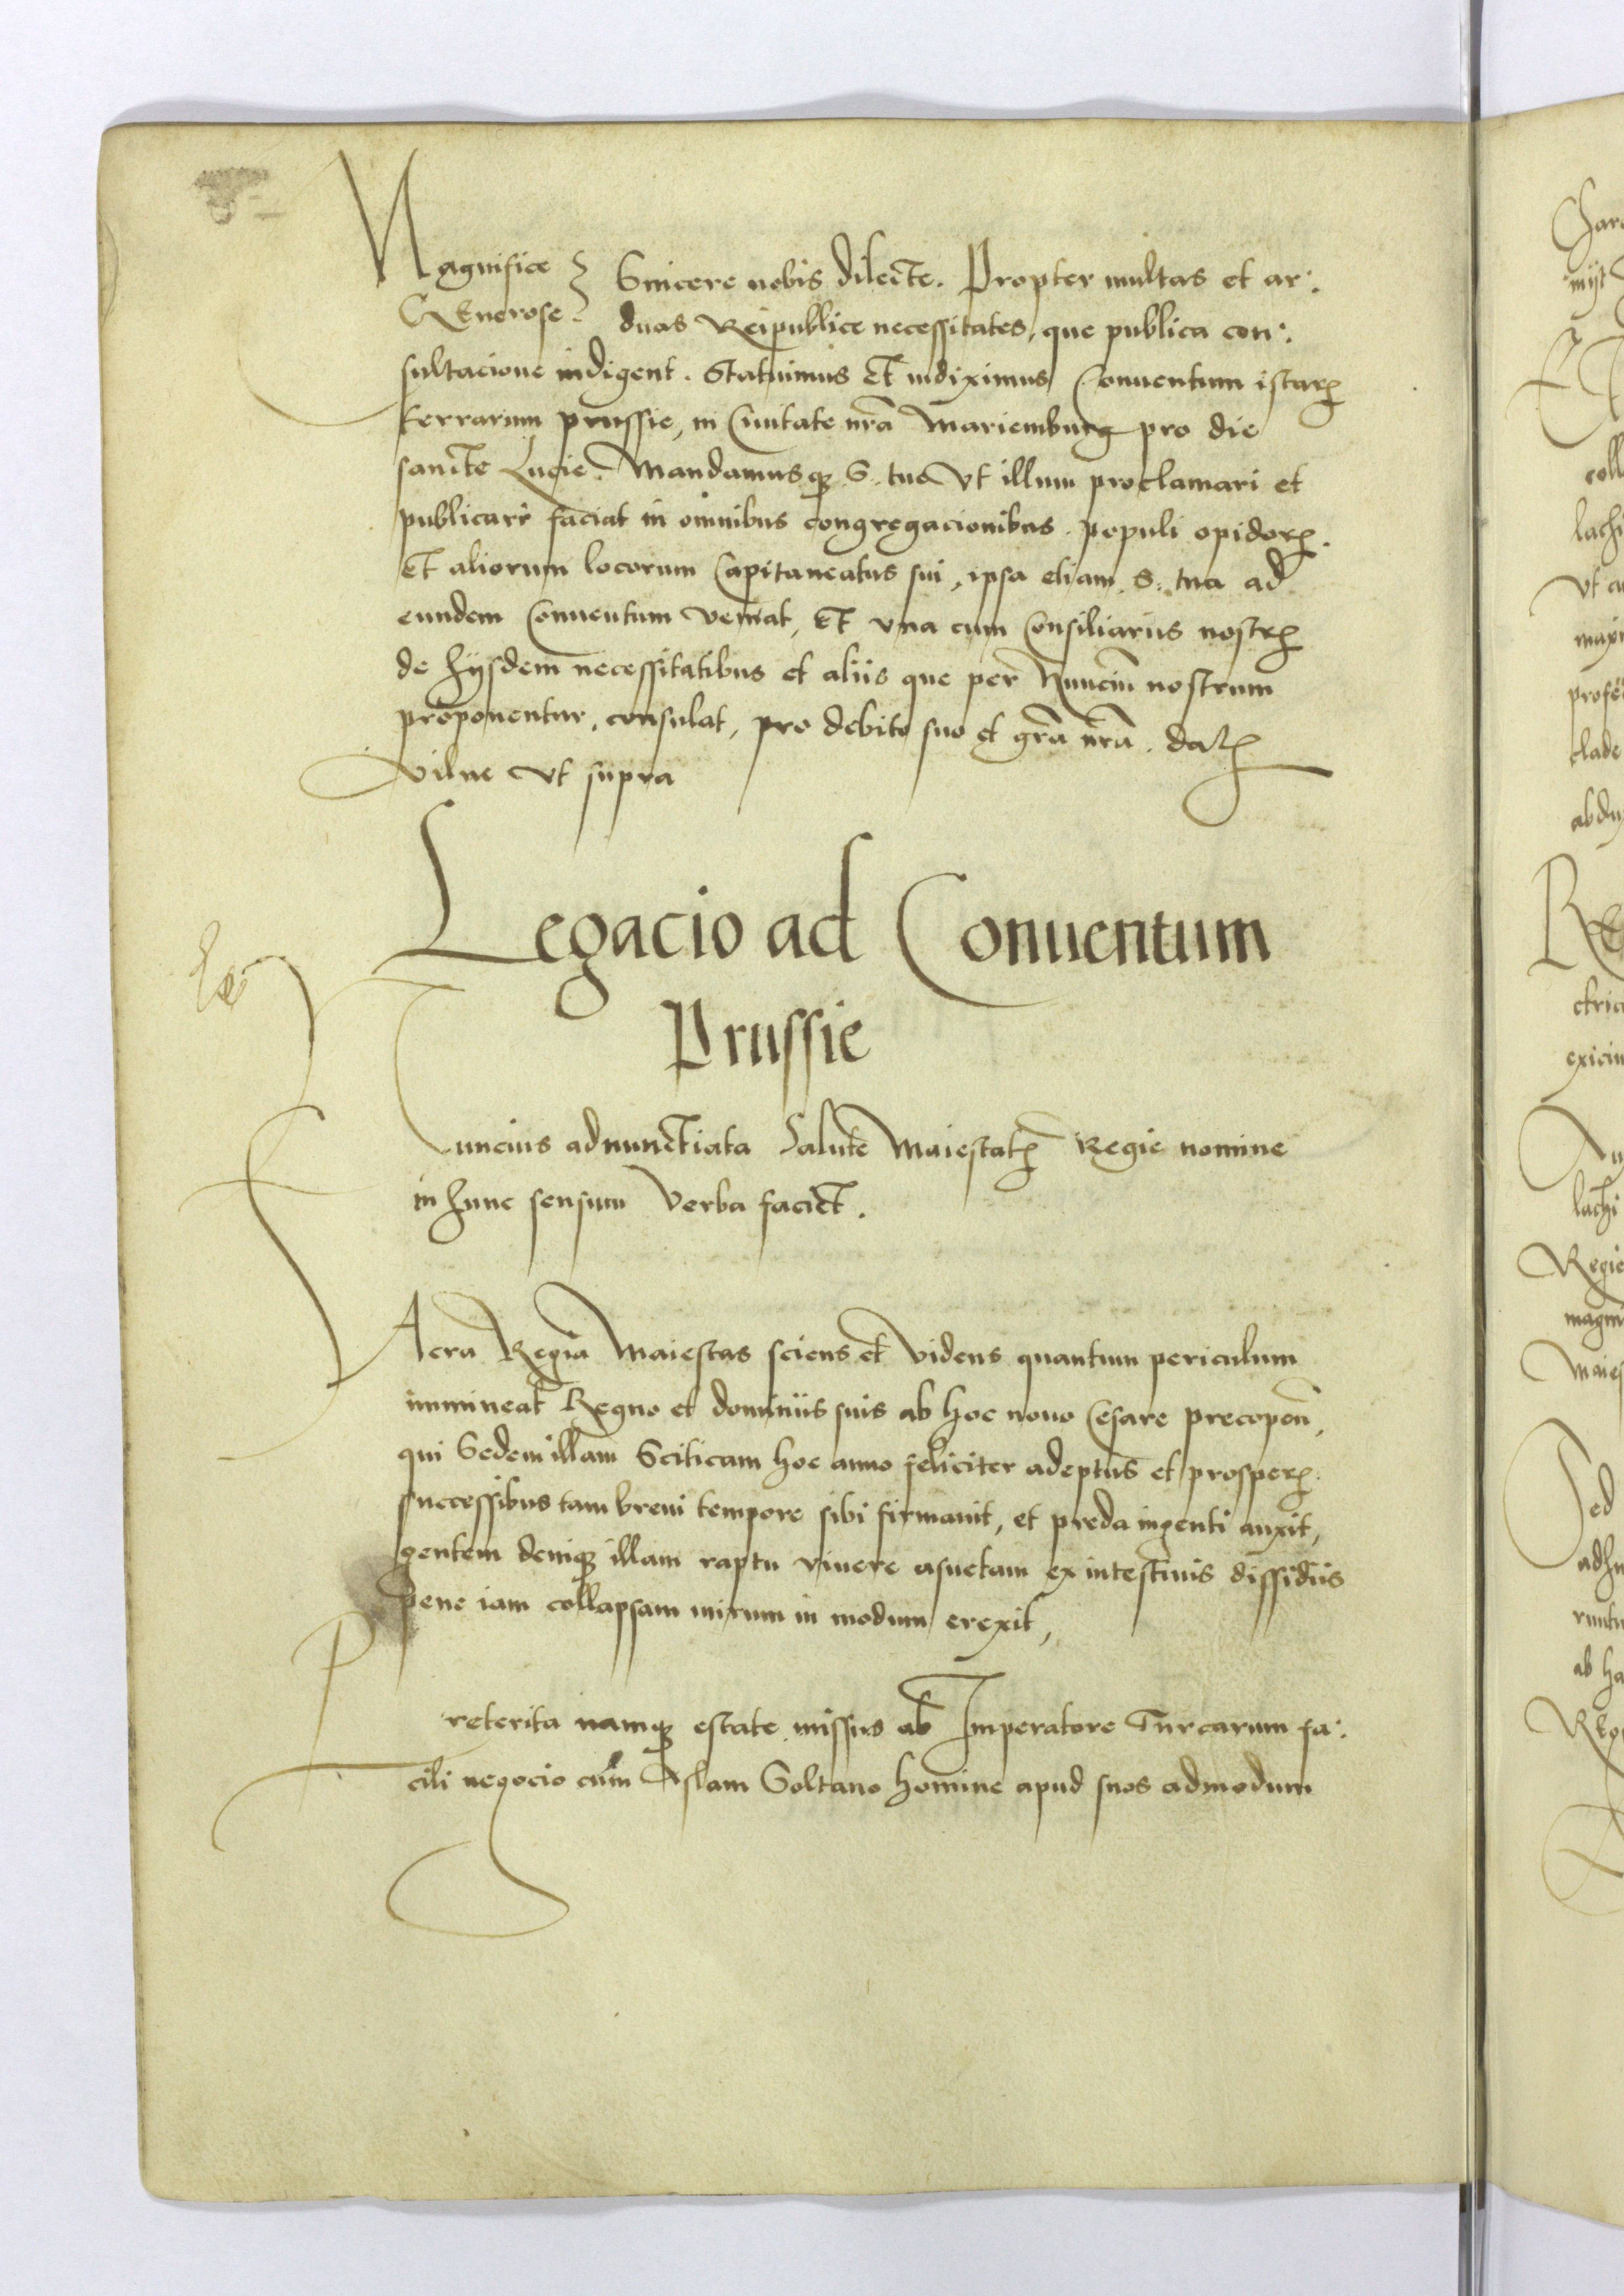 Magnifice Sincere nobis dilecte. Propter multas et ar:
Generose duas Reipublice necessitates, que publica con:
sultacione indigent. Statuimus et indiximus Conuentum istarꝝ
terrarum prussie, in Ciuitate nrã Mariemburg pro die
sancte Lucie. Mandamusqꝫ S. tue Vt illum proclamari et
publicari faciat in omnibus congregacionibus populi opidorꝝ.
Et aliorum locorum Capitaneatus sui, ipsa etiam S. tua ad
eundem Conuentum veniat, Et vna cum Consiliariis nostrꝝ
de hijsdem necessitatibus et aliis que per Nunciũ nostrum
proponentur, consulat, pro debito suo et grã nrã. datꝝ
Vilne vt supra
Legacio ad Conuentum
Prussie
Nuncius adnunctiata Salute Maiestatꝝ Regie nomine
in hunc sensum Verba faciet.
Sacra Regia Maiestas sciens et Videns quantum periculum
immineat Regno et dominiis suis ab hoc nouo Cesare precopeñ,
qui Sedem illam Sciticam hoc anno feliciter adeptus et prosperꝝ
successibus tam breui tempore sibi firmauit, et preda ingenti auxit,
gentem deniqꝫ illam raptu viuere asuetam ex intestinis dissidiis
pene iam collapsam mirum in modum erexit,
Preterita namqꝫ estate missus ab Imperatore Turcarum fa:
cili negocio cum Aslam Soltano homine apud suos admodum